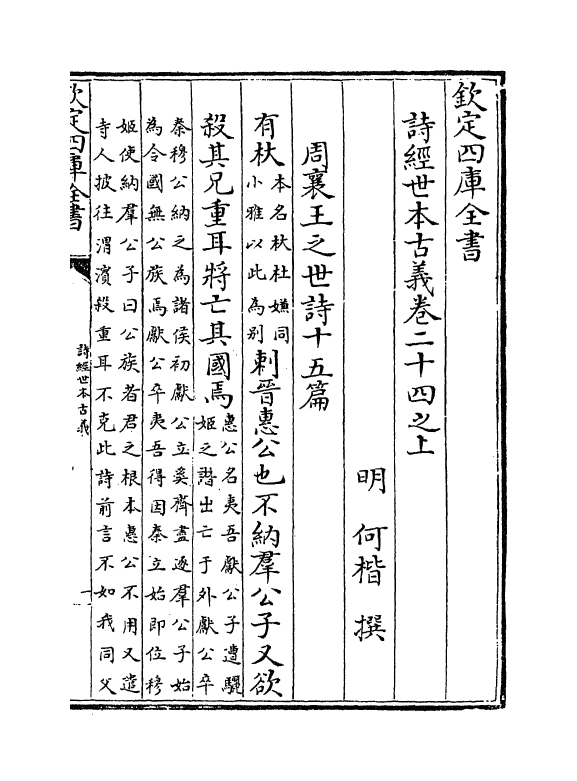 欽定四庫全書
詩經世本古義卷二十四之上
明 何楷 撰
周襄王之世詩十五篇
有杕本名杕杜嫌同小雅以此為别刺晉惠公也不納羣公子又欲
殺其兄重耳將亡其國焉惠公名夷吾獻公子遭驪姬之譖出亡于外獻公卒
秦穆公納之為諸侯初獻公立奚齊盡逐羣公子始
為令國無公族焉獻公卒夷吾得因秦立始即位穆
姬使納羣公子曰公族者君之根本惠公不用又遣
寺人披往渭濱殺重耳不克此詩前言不如我同父
欽定四庫全書
詩經世本古義
一